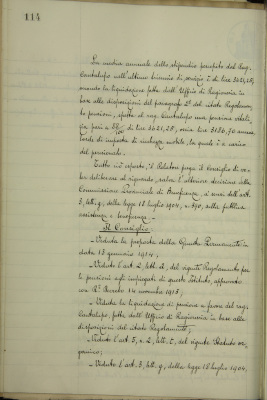 114
La media annuale dello stipendio percepito dal Rag.
Cantalupo nell'ultimo triennio di servizio è di lire 3421,28,
secondo la liquidazione fatta dall'Ufficio di Ragioneria in
base alle disposizioni del paragrafo 2° del citato Regolamento
pensioni, spetta al rag. Cantalupo una pensione
pari a di lire 3421,28, ossia lire annue
lorde di imposta di ricchezza mobile, la quale è a carico
del pensionato.
Tutto ciò esposto, il Relatore prega il Consiglio di
deliberare al riguardo, salva l'ulteriore decisione della
Commissione Provinciale di Beneficenza, ai sensi dell'art.
3, lett. g, della legge 18 luglio 1904, n. 390, sulla pubblica
assistenza e beneficenza.
Il Consiglio
- Veduta la proposta della Giunta Permanente in
data 13 gennaio 1914;
- Veduto l'art. 2, lett. a, del vigente Regolamento per
le pensioni agli impiegati di questo Istituto, approvato
con R° Decreto 14 novembre 1913;
- Veduta la liquidazione di pensione a favore del rag.
Cantalupo, fatta dall'Ufficio di Ragioneria in base alle
disposizioni del citato Regolamento;
- Veduto l'art. 5, n. 2, lett. c, del vigente Statuto
organico;
- Veduto l'art. 3, lett. g, della legge 18 luglio 1904,